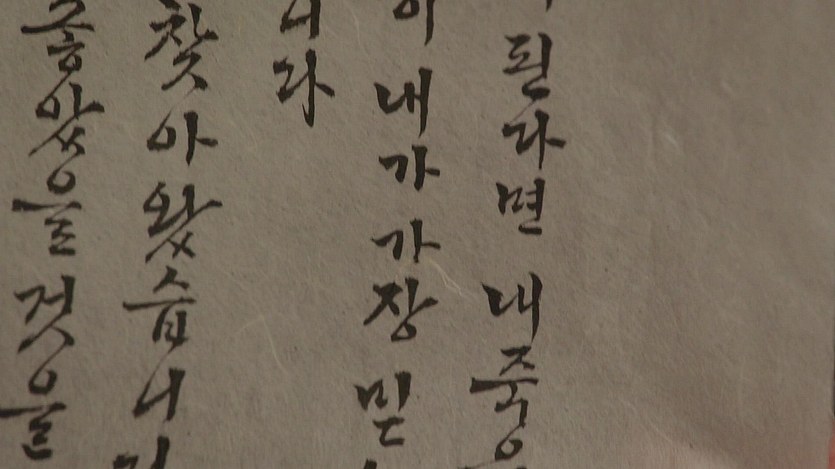 된다면 내 죽
이 내가 가장 믿
니다
찾아왔습니
좋았을 것을